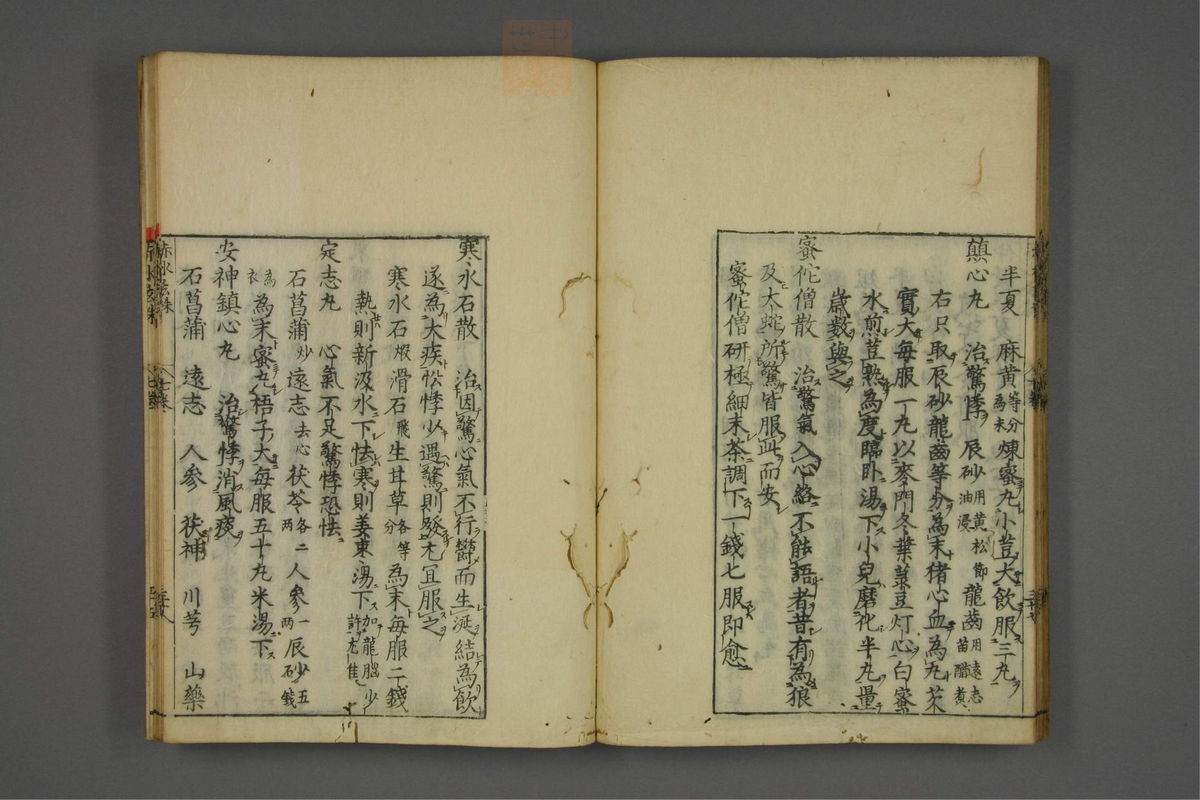 半夏　麻黄等分為末煉蜜丸小荳大飲服三丸
鎮心丸　治驚悸　辰砂用黄松節油浸龍齒用遠志苗醋煮
右只取辰砂龍齒等分為末猪心血為丸芡
實大每服一丸以麥門冬葉菉豆灯心白蜜
水煎荳熟為度臨卧湯下小兒磨化半丸量
歳數與之
蜜佗僧散　治驚氣入心絡不能語者昔有為狼
及大蛇所驚皆服此而安
蜜佗僧研極細末茶調下一錢七服即愈
寒水石散　治因驚心氣不行欝而生涎結為飲
遂為大疾忪悸少遇驚則發尤宜服之
寒水石煅滑石飛生甘草各等分為末每服二錢
熱則新汲水下怯寒則姜棗湯下加龍脳少許尤佳
定志丸　心氣不足驚悸恐怯
石菖蒲炒遠志去心茯苓各二兩人參一兩辰砂五錢
為衣為末蜜丸梧子大每服五十丸米湯下
安神鎮心丸　治驚悸消風痰
石菖蒲　遠志　人參　茯神　川芎　山藥
赤水玄珠